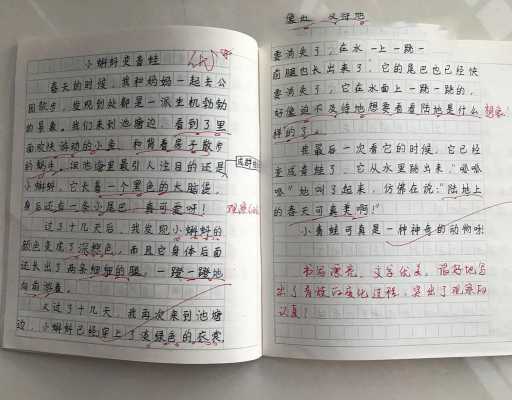 小蝌蚪变青蛙
春天的时候，我和妈妈一起去公
园散步，发现到处都是一派生机勃勃
的景象。我们来到池塘边，看到了里
面欢快游动的小鱼，和背着房子散步
的蜗牛。但池塘里最引人注目的还是
小蝌蚪，它长着一个黑色的大脑袋，
身后还有一条小尾巴，真可爱呀！
过了十几天后，我发现小蝌蚪的
颜色变成了深棕色，而且它身体后面
还长出了两条细细的腿，一蹬一蹬地
向前游着。
又过了十几天，我再次来到池塘
边，小蝌蚪已经穿上了淡绿色的衣裳，
成群的
前腿也长出来了，它的尾巴也已经快
要消失了，在水一上一跳一
要消失了，它在水面上一跳一跳的，
好像迫不及待地想要看看陆地是什么
样的了。
我最后一次看它的时候，它已经
变成青蛙了，它从水里跳出来，“呱呱
呱”地叫了起来，仿佛在说：“陆地上
的春天可真美啊！”
小青蛙可真是一种神奇的动物呀
书写漂亮，文字优美，很好地写
出了青蛙的变化过程，突出了观察的
认真！